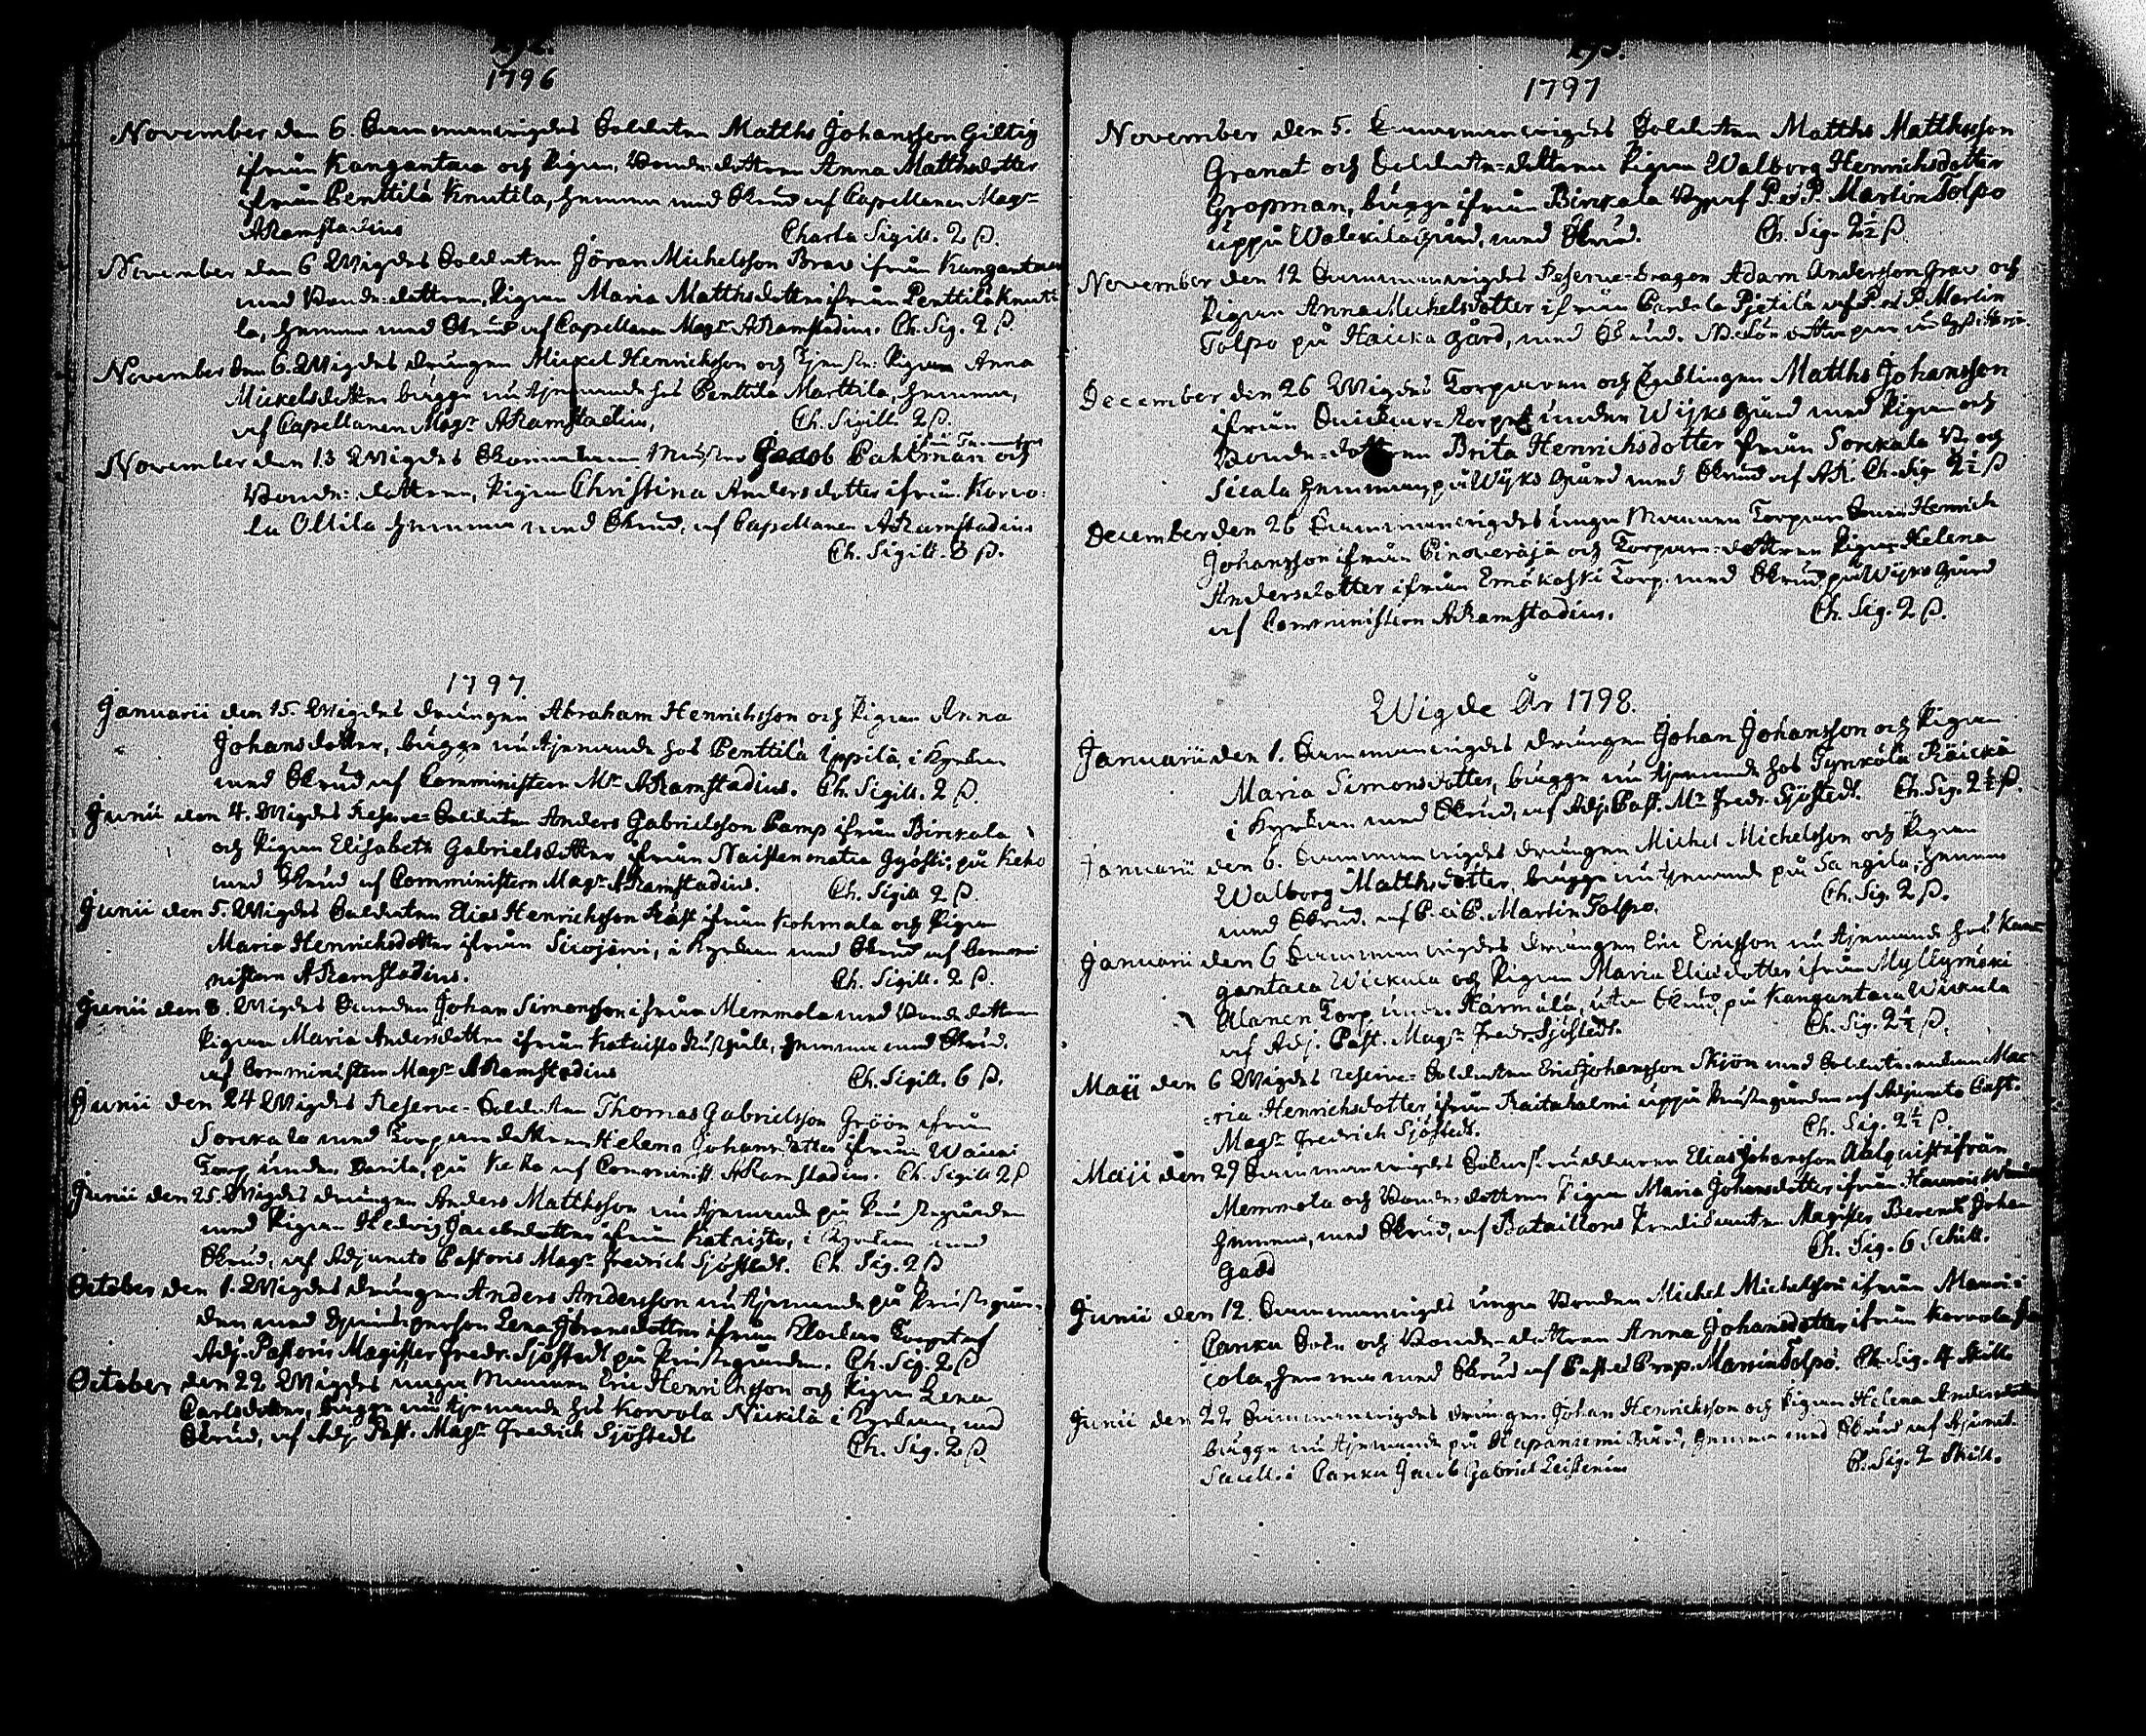 1796
November den 6. Sammanvigdes Soldaten Matths Johansson Giltig
ifrån Kangantaca och Pigan, Bonde-dottren Anna Matthsdotter
ifrån Penttilä Knutila, hemma med Skrud af Capellanen Magr
ARamstadius Charta Sigill. 2 ß.
November den 6 Wigdes Soldaten Jöran Michelsson Braw ifrån Kangantaca
med Bonde-dottren, Pigan Maria Matthsdotter ifrån Penttilä Knuti
la, hemma med Skrud af Capellanen Magr ARamstadius. Ch. Sig. 2 ß.
November den 6. Wigdes Drängen Mickel Henricksson och Tjenste-Pigan Anna
Mickelsdotter bägge nu tjenande hos Penttilä Marttila, hemma,
af Capellanen Magr ARamstadius, Ch. Sigill. 2 ß.
November den 13 Wigdes Mäster Jacob Pahlman och
Bonde-dottren, Pigan Christina Andersdotter ifrån Korvo-
la Ollila hemma med Skrud, af Capellanen ARamstadius
Ch. Sigill. 8 ß.
1797.
Januarii den 15. Wigdes Drängen Abraham Henrichsson och Pigan Anna
Johansdotter, bägge nu tjenande hos Penttilä Uppilä, i Kyrkan
med Skrud af Comministern Mr ARamstadius. Ch. Sigill. 2 ß.
Junii den 4. Wigdes Reserve-Soldaten Anders Gabrielsson Camp ifrån Birckala
och Pigan Elisabeth Gabrielsdotter ifrån Naistenmatca Gyösti, på Keho
med Skrud af Comministern Magr ARamstadius. Ch. Sigill 2 ß.
Junii den 5. Wigdes Soldaten Elias Henrichsson Rask ifrån Kohmala och Pigan
Maria Henrichsdotter ifrån Sicojärvi, i Kyrkan med Skrud af Commi
nistern ARamstadius. Ch. Sigill. 2 ß.
Junii den 8. Wigdes Bonden Johan Simonsson ifrån Memmola med Bonde dottren
Pigan Maria Andersdotter ifrån Kataisto hemma med Skrud.
af Comministern Magr ARamstadius Ch. Sigill. 6 ß.
Junii den 24 Wigdes Reserve-Soldaten Thomas Gabrielsson Gröön ifrån
Sorckala med Torpare dottren Helena Johansdotter ifrån
Torp under på af Comminist. ARamstadius. Ch. Sigill 2 ß
Junii den 25. Wigdes Drängen Anders Matthsson nu tjenande på Prästegården
med Pigan Hedvig Jacobsdotter ifrån Kataisto, i Kyrkan med
Skrud, af Adjuncto Pastoris Magr Fredrich Sjöstedt. Ch. Sig. 2 ß
October den 1. Wigdes Drängen Anders Andersson nu tjenande på Prästegår-
den med Lena Jöransdotter ifrån Klockare Torpet af
Adj. Pastoris Magister Fredr. Sjöstedt på Prästegården. Ch. Sig. 2 ß
October den 22 Wigdes unga Mannen Eric Henrichsson och Pigan Lena
Carlsdotter, bägge nu tjenande hos Korvola Nickilä i Kyrkan, med
Skrud, af Adj. Past. Magr Fredrich Sjöstedt Ch. Sig. 2 ß.
1797
November den 5. Sammanvigdes Soldaten Matths Matthsson
Granat och Soldate-dottren Pigan Walborg Henrichsdotter
Gropman, bägge ifrån Birckala By af P. et P. Martin Tolpo
uppå gård, med Skrud. Ch. Sig. 2½ ß
November den 12 Sammanvigdes Reserve-Dragon Adam Andersson Graw och
Pigan Anna Michelsdotter ifrån af P. et P. Martin
Tolpo på Haicka gård, med Skrud.
December den 26 Wigdes Torparen och Enklingen Matths Johansson
ifrån Torpet under Wijks gård med Pigan och
Bonde-dottren Brita Henrichsdotter ifrån Sorckala By och
Sicala hemman, på Wijks Gård med Skrud af AR. Ch. Sig. 2½ ß
December den 26 Sammanvigdes unga Mannen Torpare Sonen Henrich
Johansson ifrån och Torpare-dottren Pigan Helena
Andersdotter ifrån Emäkoski Torp. med Skrud på Wijks Gård
af Comministern ARamstadius. Ch. Sig. 2 ß.
Wigde År 1798.
Januarii den 1. Sammanvigdes Drängen Johan Johansson och Pigan
Maria Simonsdotter, bägge nu tjenande hos Tynkölä Räickä
i Kyrkan med Skrud, af Adj. Past. Mr Fredr. Sjöstedt. Ch. Sig. 2½ ß.
Januarii den 6. Sammanvigdes Drängen Michel Michelsson och Pigan
Walborg Matthsdotter, bägge nu tjenande på Sangila, hemma
med Skrud. af P. et P. Martin Tolpo. Ch. Sig. 2 ß.
Januarii den 6 Sammanvigdes Drängen Eric Ericsson nu tjenande hos Kan-
gantaca Wickula och Pigan Maria Eliedotter ifrån Myllymäki
Alanen Torp under Harmala, utan Skrud, på Kangantaca Wickula
af Adj. Past. Magr Fredr. Sjöstedt. Ch. Sig. 2½ ß.
Maji den 6 Wigdes reserve-Soldaten Eric Johansson Skjön med Soldate-enkan Ma-
ria Henrichsdotter, ifrån Raitahalmi uppå Prästegården af Adjuncto Past.
Magr Fredrich Sjöstedt. Ch. Sig. 2½ ß.
Maji den 29 Sammanvigdes Elias Johansson Aalquist ifrån
Memmola och Bonde-dottren Pigan Maria Johansdotter ifrån
hemma, med Skrud, af Bataillons Predikanten Magister Berendt Johan
Gadd Ch. Sig. 6 Schill.
Junii den 12. Sammanvigdes unga Bonden Michel Michelsson ifrån
Canku Sokn och Bonde-dottren Anna Johansdotter ifrån Korvola
cola, hemma med Skrud af Past. et Præp. Martin Tolpo. Ch. Sig. 4 Skill.
Junii den 22 Sammanvigdes Drängen Johan Henrichsson och Pigan Helena Andersdotter
bägge nu tjenande på hemma med Skrud af Adjunct.
Sacell. i Canku Jacob Gabriel Leistenius Ch. Sig. 2 Skill.